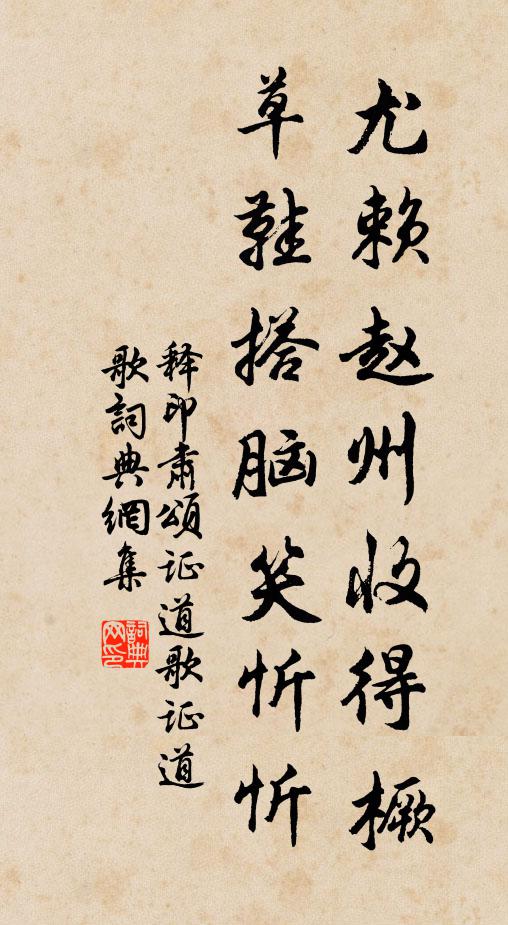 尤赖赵州收得橛
草鞋搭脑笑忻忻
释印肃颂证道歌证道
歌词典網集
詞典
网印